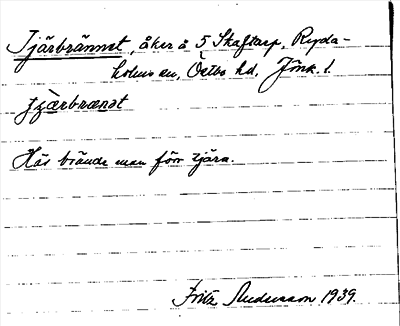 Tjärbrännet, åker å 5 Skaftarp, Ryda-
holms sn, Östbo hd, Jönk. l.
Här brände man förr tjära.
Fritz Andersson 1939.